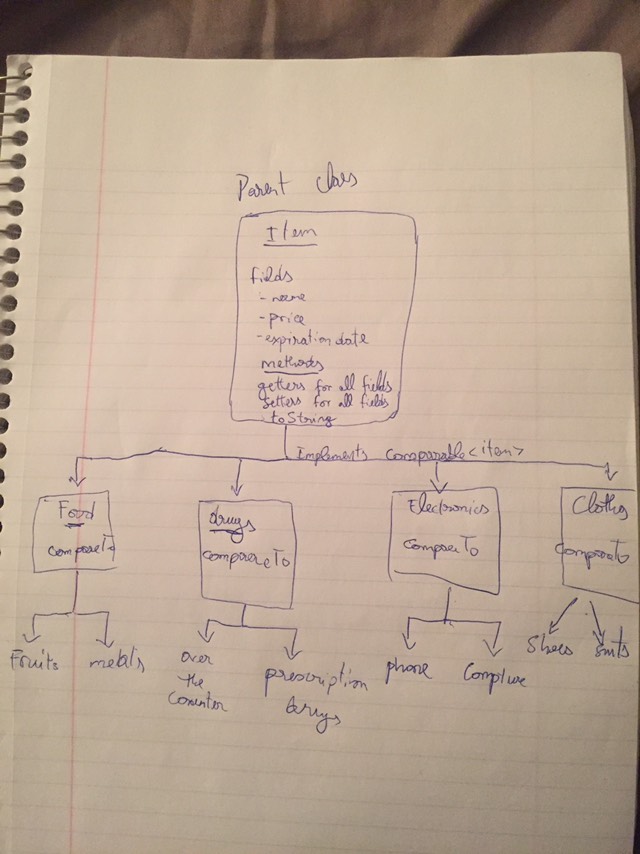 Parent class
Item
fields
- name
- price
- expiration date
methods
getters for all fields
setters for all fields
toString
Implements Comparable<item>
Food
compareTo
drugs
compareTo
Electronics
compareTo
Clothes
compareTo
Fruits
metals
over
the
Counter
prescription
drugs
phone
Shoes